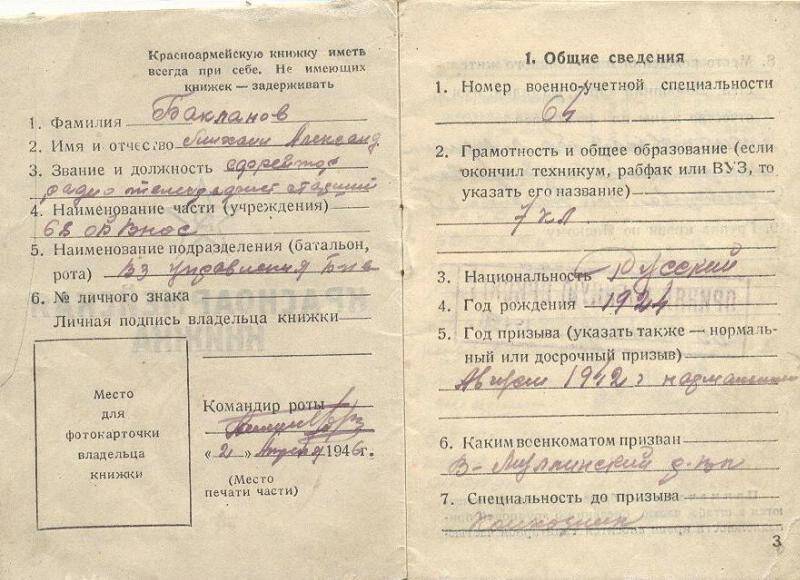 Красноармейскую книжку иметь
всегда при себе. Не имеющих
книжек — задерживать
1. Фамилия Бакланов
2. Имя и отчество Михаил Александ
3. Звание и должность ефрейтор
радио телеграфист старший
4. Наименование части (учреждения)
6В ОВ ВНОС
5. Наименование подразделения (батальон,
рота) Вз управления б-на
6. № личного знака
Личная подпись владельца книжки
Место
для
фотокарточки
владельца
книжки
Командир роты
„2„ апреля 1946г.
(Место
печати части)
1. Общие сведения
1. Номер военно-учетной специальности
64
2. Грамотность и общее образование (если
окончил техникум, рабфак или ВУЗ, то
указать его название)
7 кл
3. Национальность Русский
4. Год рождения 1924
5. Год призыва (указать также — нормаль-
ный или досрочный призыв)
Август 1942 г нормальный
6. Каким военкоматом призван
В-Муллинский
7. Специальность до призыва
Колхозник
3